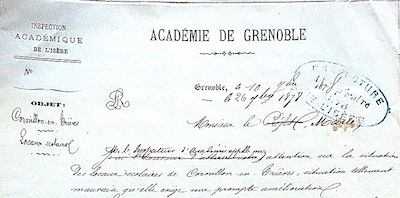 INSPECTION
ACADÉMIQUE
DE L'ISÈRE
N°
OBJET:
Cornillon-en-
Trièves
Locaux scolaires
ACADÉMIE DE GRENOBLE
Grenoble, le 10
le 26 1878
PRÉFECTURE
L'ISÈRE
Monsieur le Préfet, Ministre
M. l'Inspecteur d'Académie appelle mon attention sur la situation
des locaux scolaires de Cornillon-en-Trièves, situation tellement
mauvaise qu'elle exige une prompte amélioration.